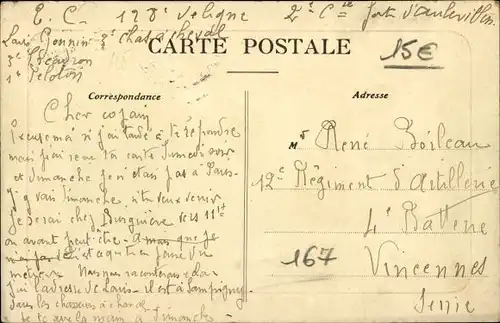 E. C. 128e de ligne 2e Cie fort d'Aubervillers
Louis Bonnin 2e chas à cheval
3e Escadron
1er Peloton
CARTE POSTALE
15€
Correspondance
Adresse
Cher copain
Excuse moi si j'ai tardé à te répondre
mais j'ai reçu ta carte samedi soir
et dimanche je n'étais pas à Paris
J'y vais dimanche, si tu veux venir
je serai chez
ou avant peut être
Nous nous raconterons
j'ai l'adresse de Louis il est à Sampigny
dans les chasseurs à cheval
Je te serre la main à Dimanche
Mr René Boileau
12e Régiment d'Artillerie
4e Batterie
167
Vincennes
Seine